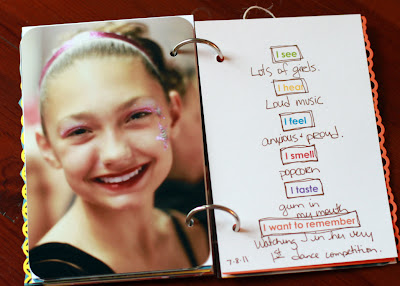 I see
Lots of girls.
I hear
Loud music
I feel
anxious + proud.
I smell
popcorn
I taste
gum in
my mouth
I want to remember
Watching J in her very
1st dance competition.
7-8-11